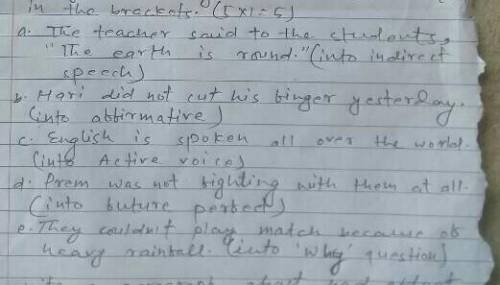 in the brackets. (5×1=5)
a. The teacher said to the students,
"The earth is round." (into indirect
speech)
b. Hari did not cut his finger yesterday.
(into affirmative)
c. English is spoken all over the world.
(into Active voice)
d. Prem was not fighting with them at all.
(into future perfect)
e. They couldn't play match because of
heavy rainfall. (into 'Why' question)